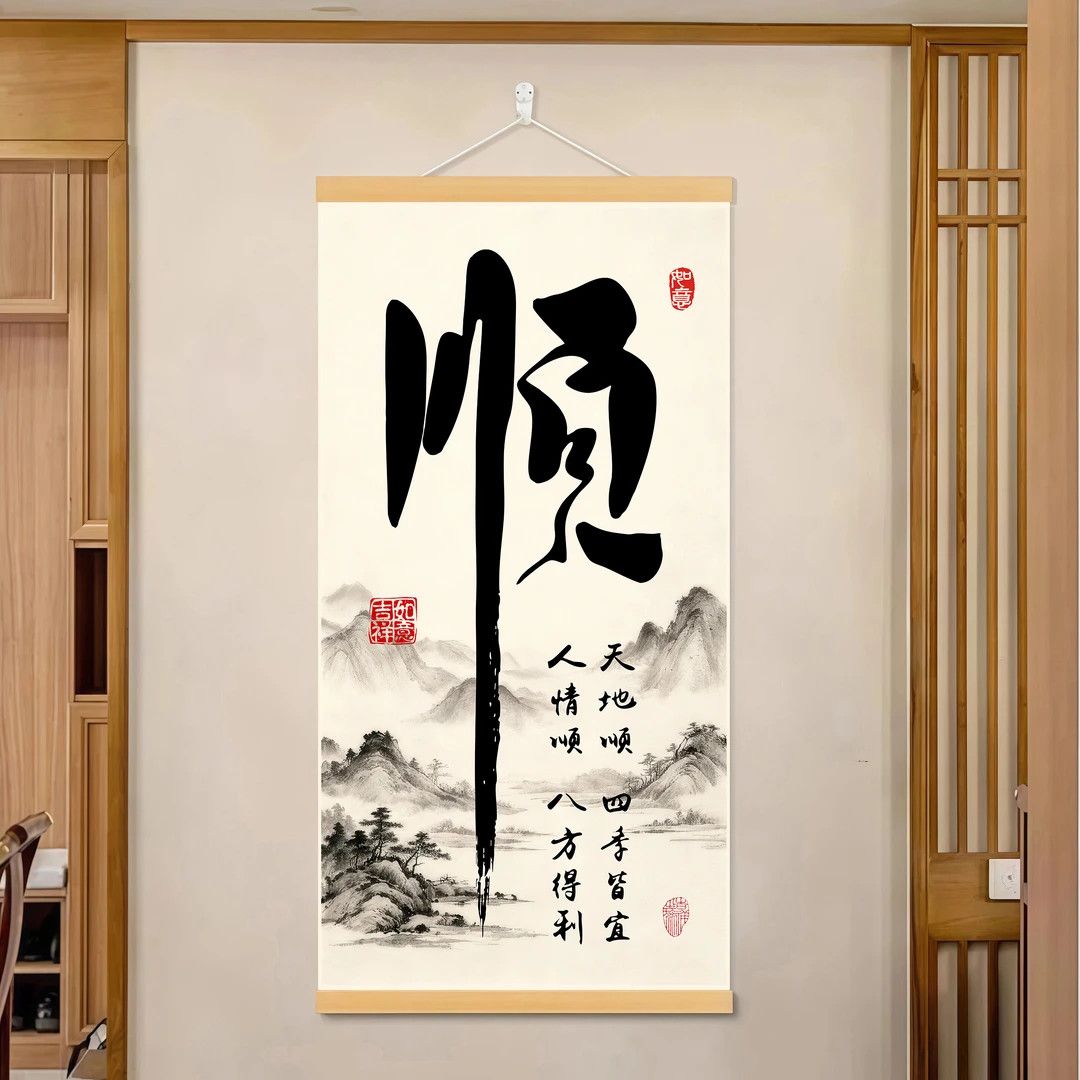 順
如意
天地順 四季皆宜
人情順 八方得利
如意
吉祥